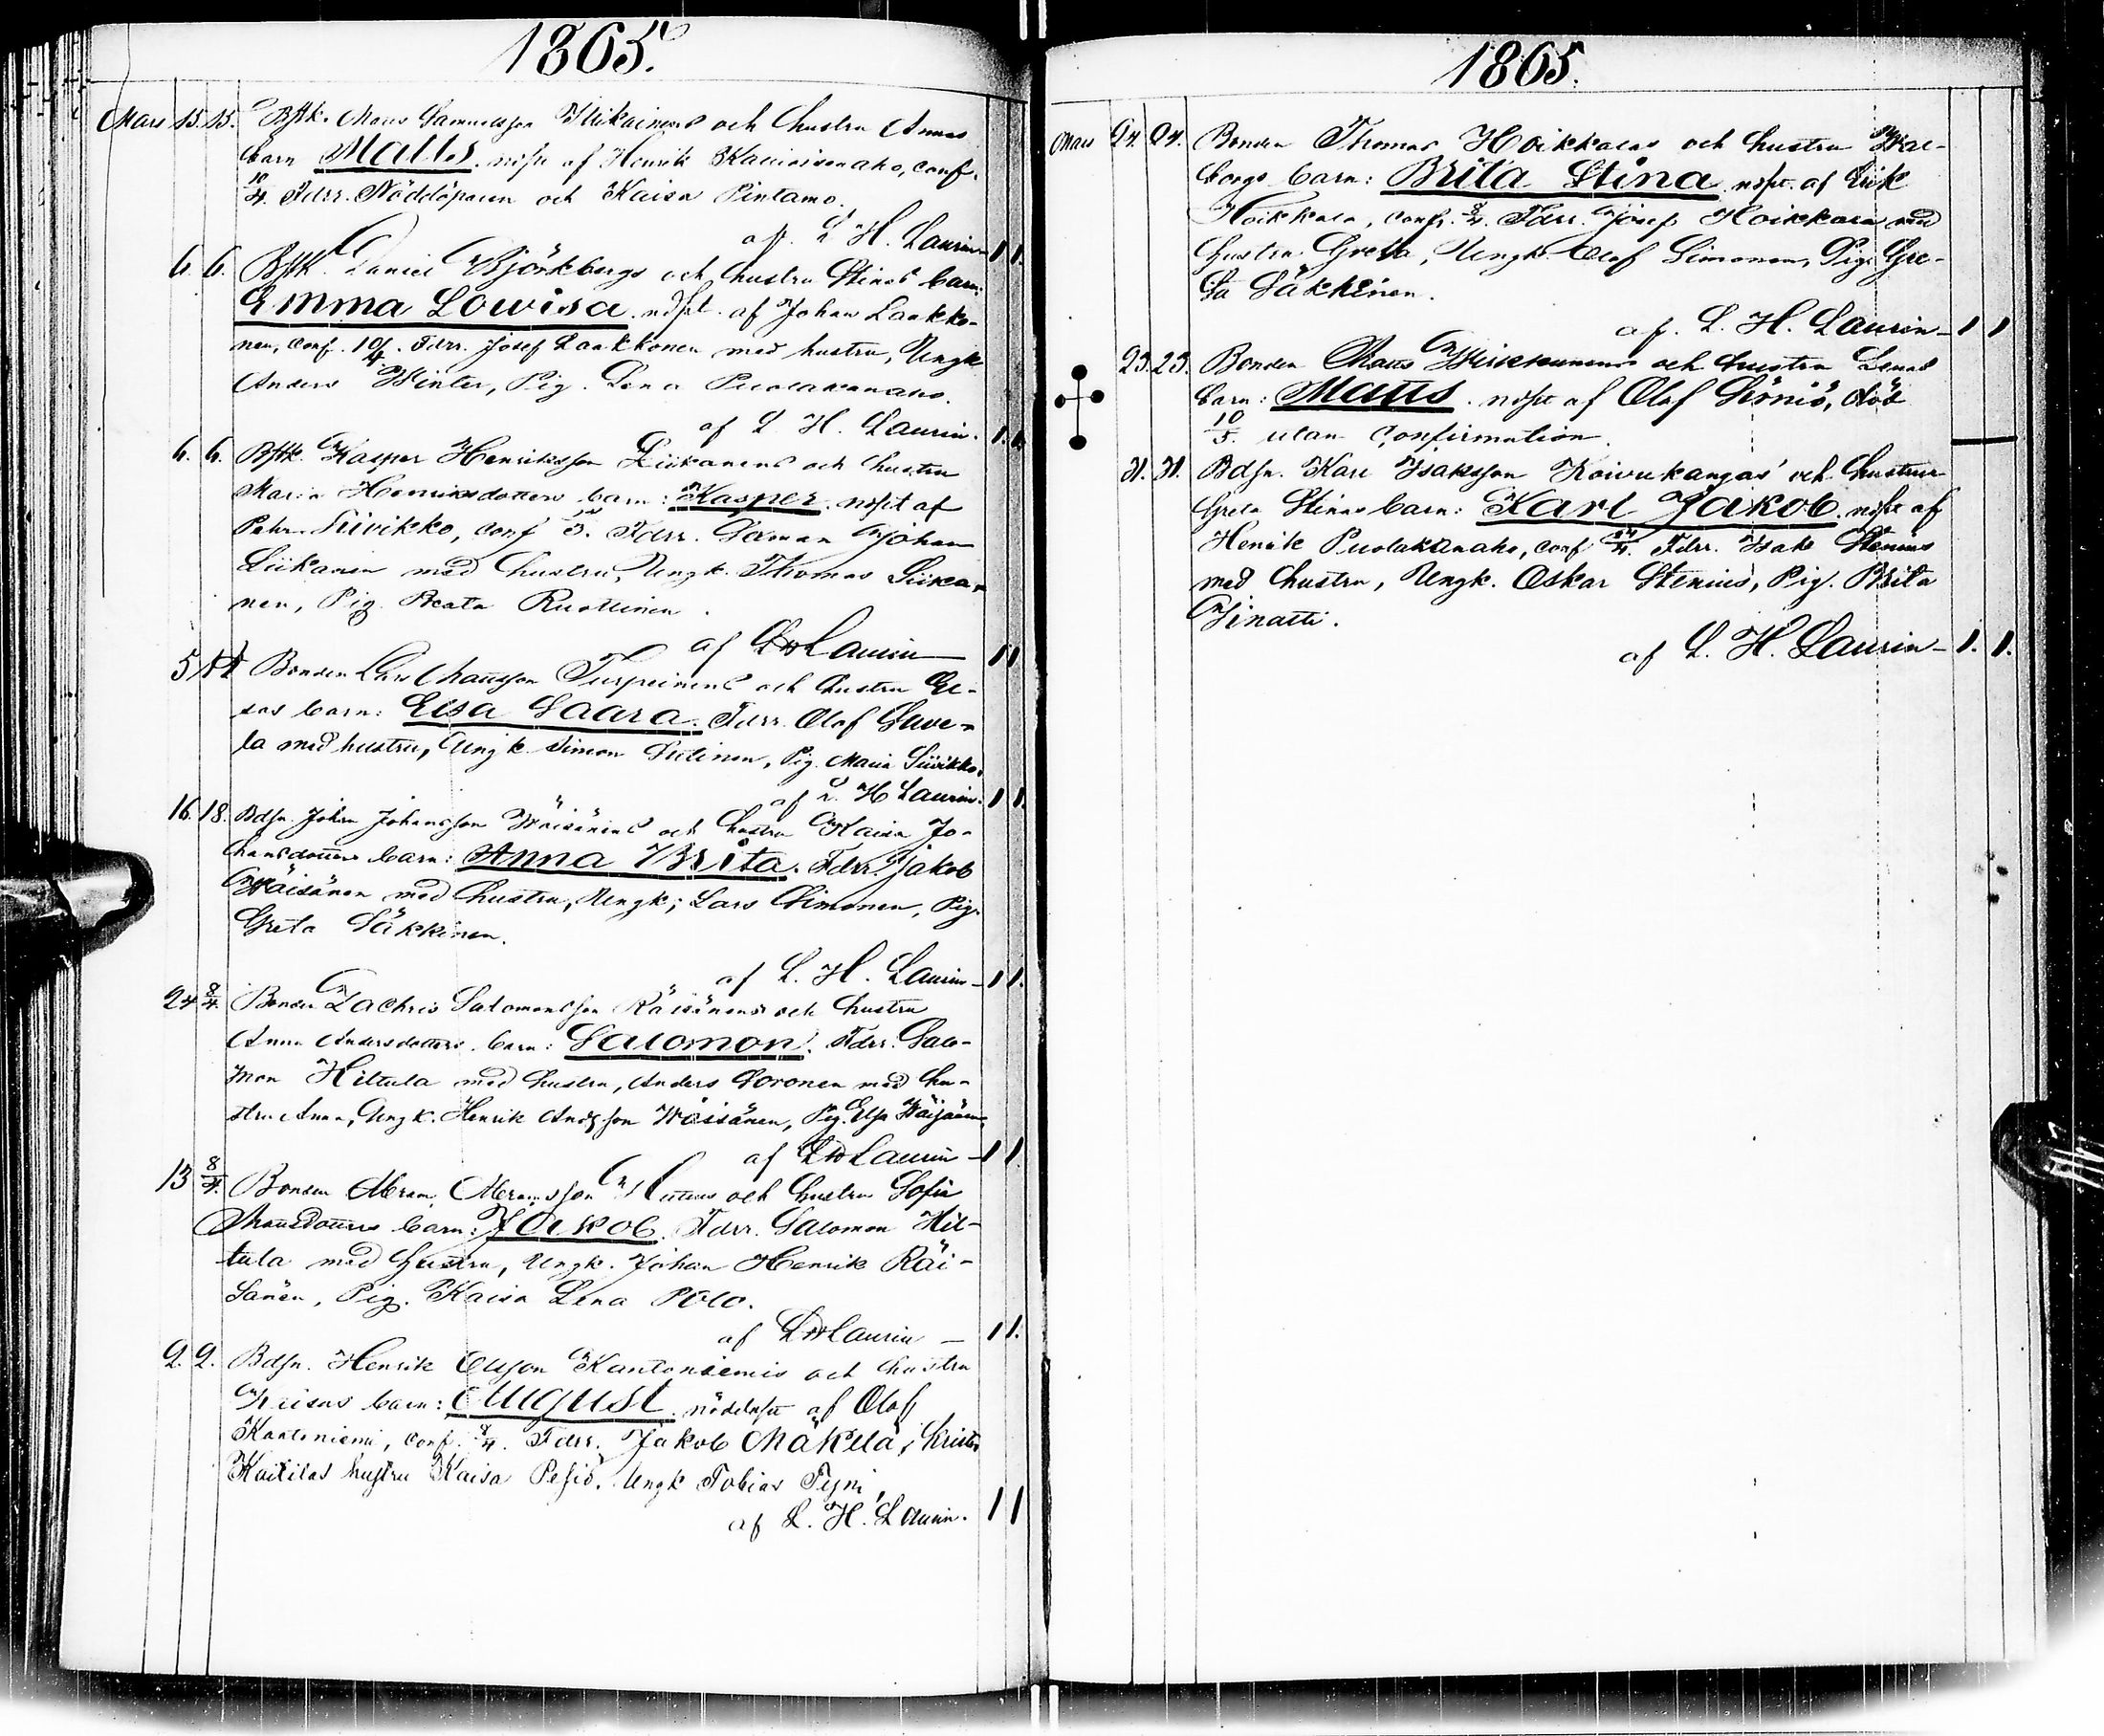 1865.
Mars 15. 15. Bstk. Mats Samuelsson och hustru Annas
barn Matts. nöpt af Henrik conf.
10/4. Fdrr. Nöddöparen och Kaisa Pintamo.
af L H. Laurin 1 1.
6. 6. Bstk. Daniel Björkbergs och hustru Stinas barn:
Emma Lowisa. nöpt. af Johan Laakko-
nen, conf. 10/4. Fdrr. Josef Laakkonen med hustru, Ungk
Anders Winter, Pig. Lena Puolakanaho.
af L H. Laurin. 1. 1.
6. 6. Bstk. Kasper Henriksson Liikanens och hustru
Maria Henriksdotters barn: Kasper. nöpt af
Petter Siivikko, conf Fdrr. Johan
Liikanen med hustru, Ungk. Thomas Liika-
nen, Pig. Beata Ruottinen.
af LH Laurin 1 1
5 11 Bonden Lars Mattsson Turpeinens och hustru El-
sas barn: Elsa Saara. Fdrr. Olof Save-
la med hustru, Ungk Simon Sutinen, Pig. Maria Siivikko.
af L. H Laurin. 1 1.
16. 18. Bdsn. Johan Johansson Wäisänens och hustru Kaisa Jo-
hansdotters barn: Anna Brita. Fdrr. Jakob
Wäisänen med hustru, Ungk; Lars Simonen, Pig.
Greta Säkkinen.
af L. H. Laurin 1 1.
24 8/4. Bonden Zachris Salomonsson Räisänens och hustru
Anna Andersdotters barn: Salomon. Fdrr. Salo-
mon Hiltula med hustru, Anders Soronen med hu-
stru Anna, Ungk. Henrik Andsson Wäisänen, Pig. Elsa
af LH Laurin 1 1.
13 8/4. Bonden Abram Abramsson och hustru Sofia
Mattsdotters barn: Jakob. Fdrr. Salomon Hil-
tula med hustru, Ungk. Johan Henrik Räi-
sänen, Pig. Kaisa Lena Polo.
af LH Laurin 1 1.
2. 2. Bdsn. Henrik Olsson Kantoniemis och hustru
Kaisas barn: August. nöddöpt af Olof
Kantoniemi, conf. 9/4. Fdrr. Jakob Mäkelä,
hustru Kaisa Pesiö. Ungk Tobias Tyni,
af L. H. Laurin. 1 1
1865.
Mars 24. 24. Bonden Thomas Hoikkalas och hustru Wal-
borgs barn: Brita Stina. nöpt. af Erik
Hoikkala, conf. 8/4. Fdrr. Josef Hoikkala med
hustru Greta, Ungk. Olof Simonen, Pig. Gre-
ta Säkkinen.
af. L. H. Laurin 1 1
23. 23. Bonden Matts och hustru Lenas
barn: Matts. nöpt af Olof död
10/5. utan Confirmation.
31. 31. Bdsn. Karl Isaksson Koivukangas och hustrus
Greta Stinas barn: Karl Jakob. nöpt af
Henrik Puolakanaho, conf 24/4. Fdrr. Isak Stenius
med hustru, Ungk. Oskar Stenius, Pig. Brita
Jinatti.
af L. H. Laurin 1. 1.